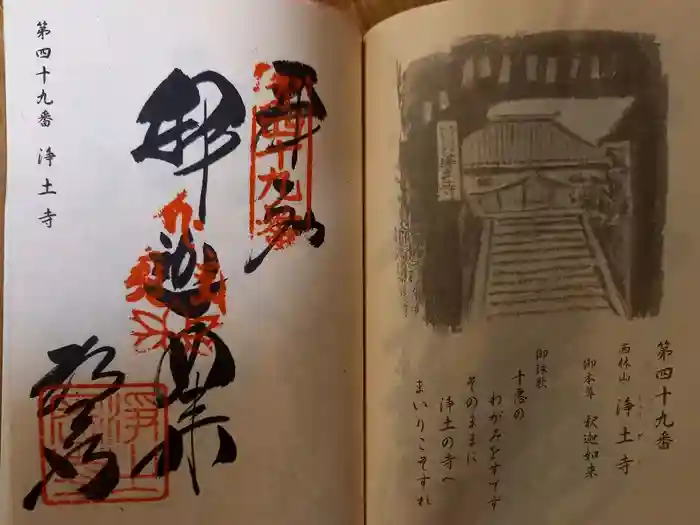 第四十九番
西林山 浄土寺
御本尊 釈迦如来
御詠歌
十悪の
わがみをすてず
そのままに
浄土の寺へ
まいりこそすれ
浄土寺
第四十九番
釈迦如来
浄土寺
第四十九番 浄土寺